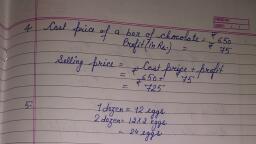 4. Cost price of a box of chocolate = ₹ 650
Profit (in Rs.) = ₹ 75
Selling price = Cost price + profit
= ₹ 650 + 75
= ₹ 725
5. 1 dozen = 12 eggs
2 dozen = 12×2 eggs
= 24 eggs